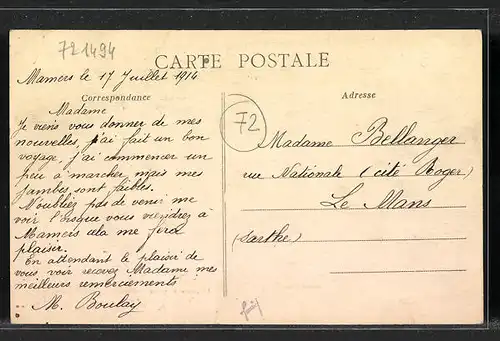 721494
CARTE POSTALE
Mamers le 17 Juillet 1914
Correspondance
Adresse
Madame
Je viens vous donner de mes
nouvelles, j'ai fait un bon
voyage, j'ai commencer un
peu a marcher, mais mes
jambes sont faibles.
N'oubliez pas de venir me
voir lorsque vous viendrez à
Mamers cela me fera
plaisir.
En attendant le plaisir de
vous voir recevez Madame mes
meilleurs remerciements
M. Boulay
72
Madame Bellanger
rue Nationale (cité Roger)
Le Mans
(Sarthe)